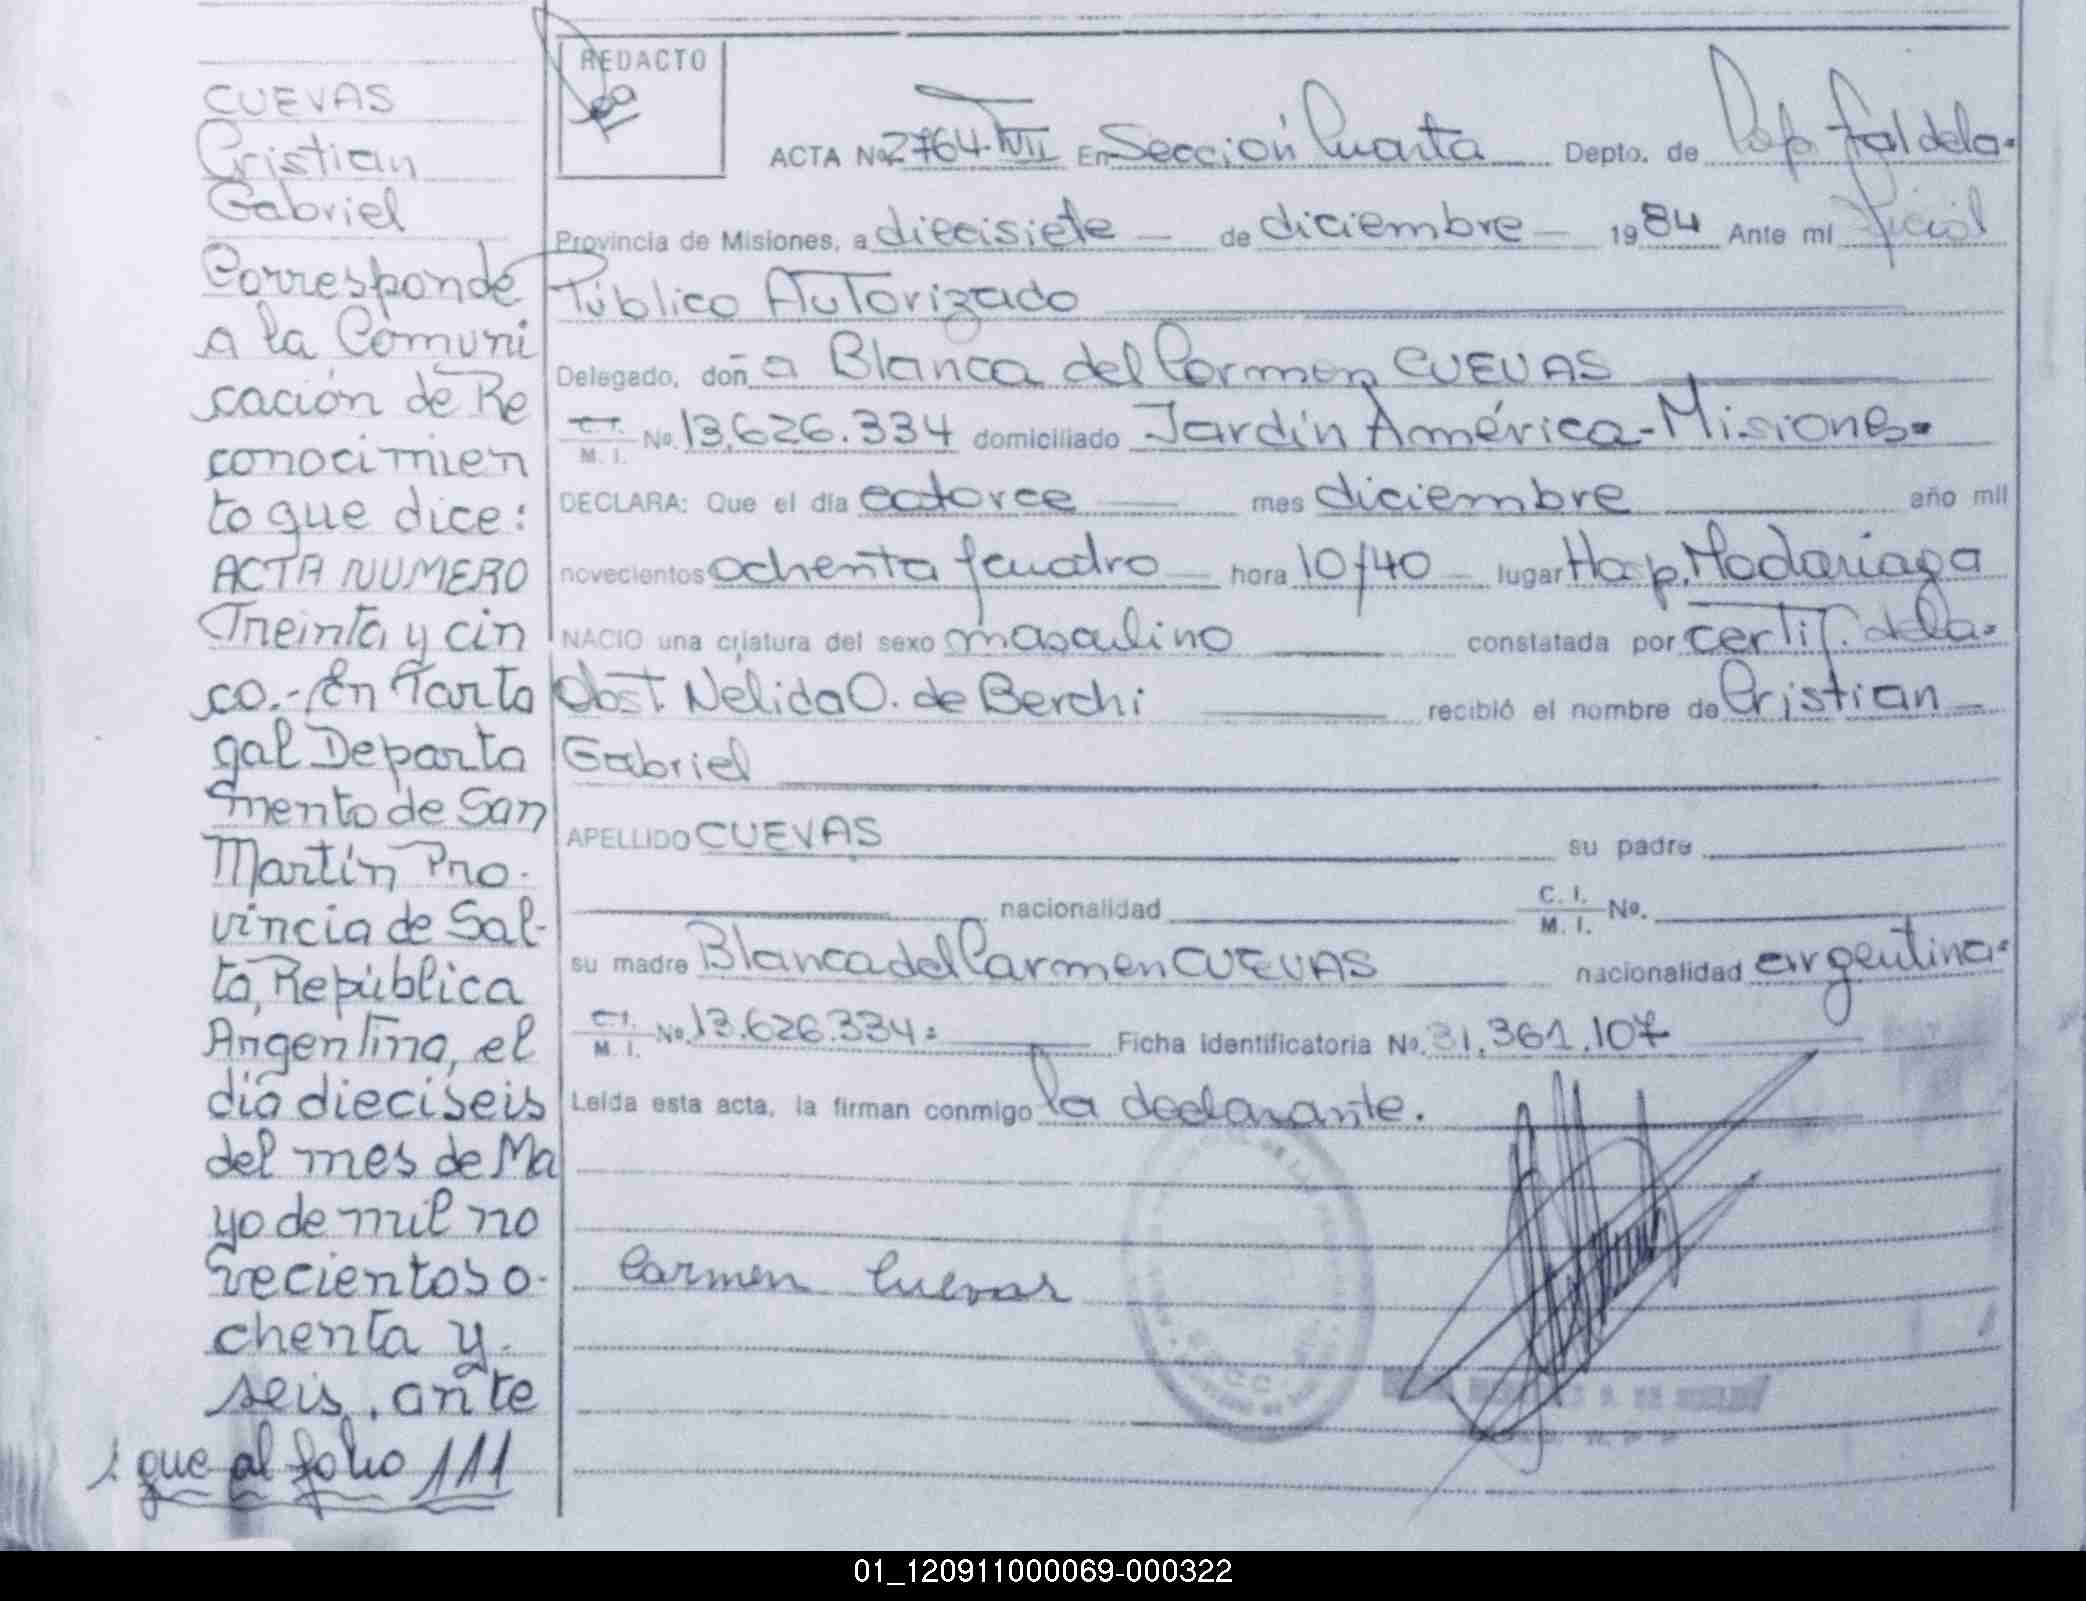 CUEVAS
Cristian
Gabriel
Corresponde
a la Comuni
cación de Re
conocimien
to que dice:
ACTA NUMERO
Treinta y cin
co.- En Tarta
gal Departa
mento de San
Martín Pro-
vincia de Sal-
ta, República
Argentina, el
día dieciseis
del mes de Ma
yo de mil no
vecientos o-
chenta y-
seis, ante
que al folio 111
REDACTO
ACTA No. 2764 En Sección Cuarta Depto. de
Provincia de Misiones, a diecisiete de diciembre 1984 Ante mi Oficial
Público Autorizado
Delegado, doña Blanca del Carmen CUEVAS
C.I. M.I. No. 13.626.334 domiciliado Jardín América-Misiones-
DECLARA: Que el día catorce mes diciembre año mil
novecientos ochenta y cuatro hora 10y40 lugar Hosp. Madariaga
NACIO una criatura del sexo masculino constatada por certif. dela-
Obst. Nelida O. de Berchi recibió el nombre de Cristian
Gabriel
APELLIDO CUEVAS su padre
nacionalidad C. I. M. I. No.
su madre Blanca del Carmen CUEVAS nacionalidad argentina-
C.I. M. I. No. 13.626.334= Ficha identificatoria No. 31.361.107
Leída esta acta, la firman conmigo la declarante.
Carmen Cuevas
01_120911000069-000322